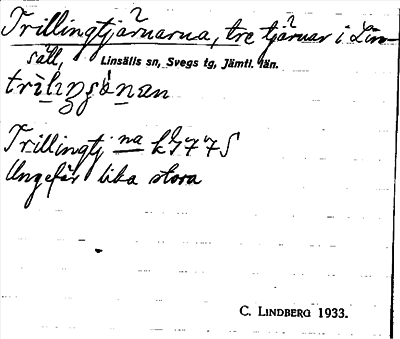 Trillingtjärnarna, tre tjärnar i Lin-
säll, Linsälls sn, Svegs tg, Jämtl. län.
Trillingtj na k 77 S
Ungefär lika stora
C. LINDBERG 1933.